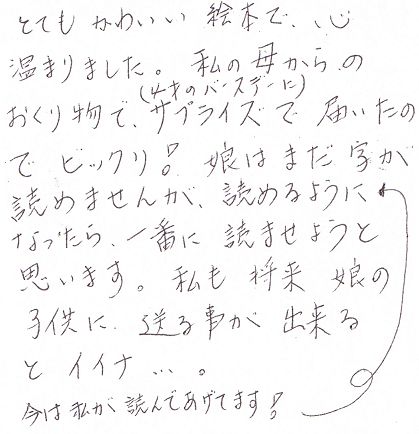 とても かわいい 絵本で、心
温まりました。私の母からの
(4才のバースデーに)
おくり物で、サプライズで届いたの
でビックリ! 娘はまだ字が
読めませんが、読めるように
なったら、一番に読ませようと
思います。私も将来 娘の
子供に、送る事が出来る
とイイナ…。
今は私が読んであげてます!